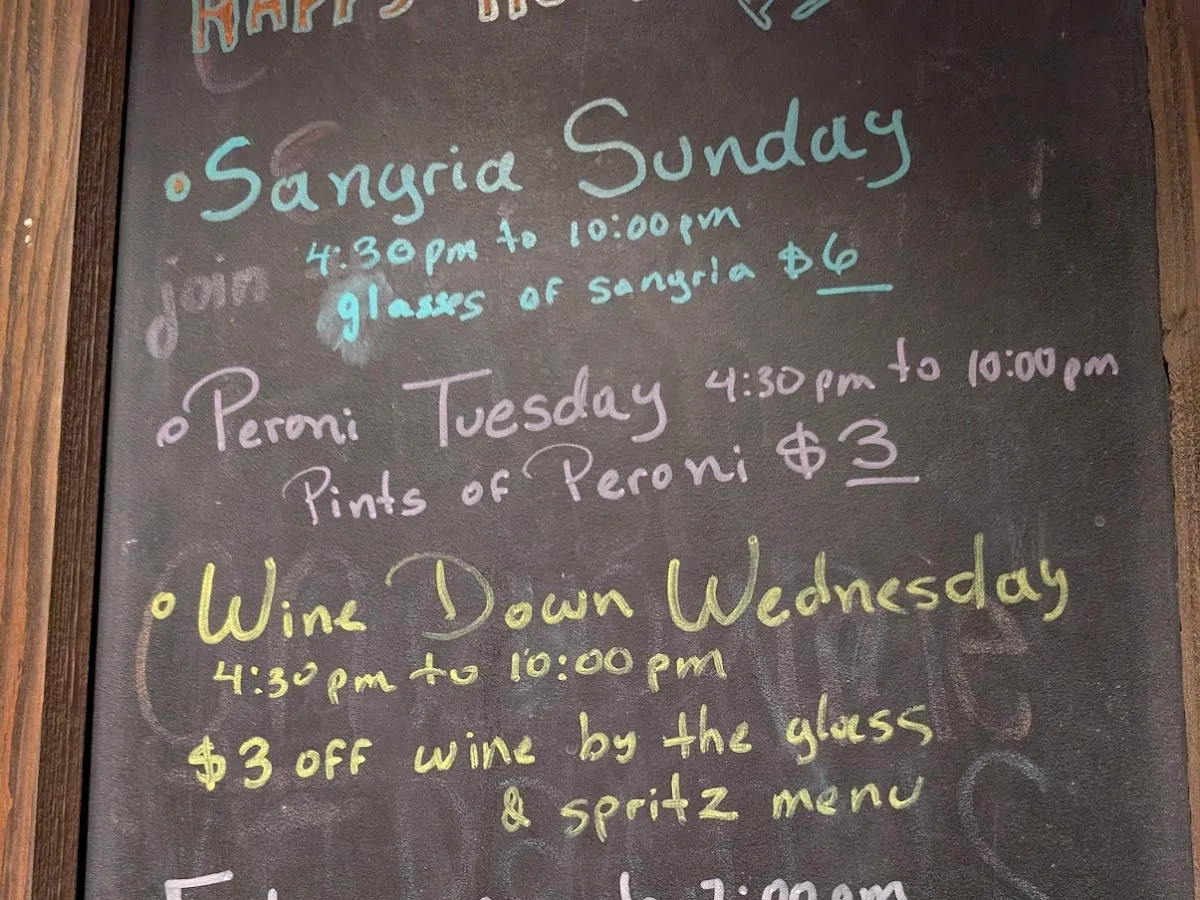 HAPPY
• Sangria Sunday
4:30pm to 10:00pm
join
glasses of sangria $6
• Peroni Tuesday 4:30pm to 10:00pm
Pints of Peroni $3
• Wine Down Wednesday
4:30pm to 10:00pm
$3 OFF wine by the glass
& spritz menu